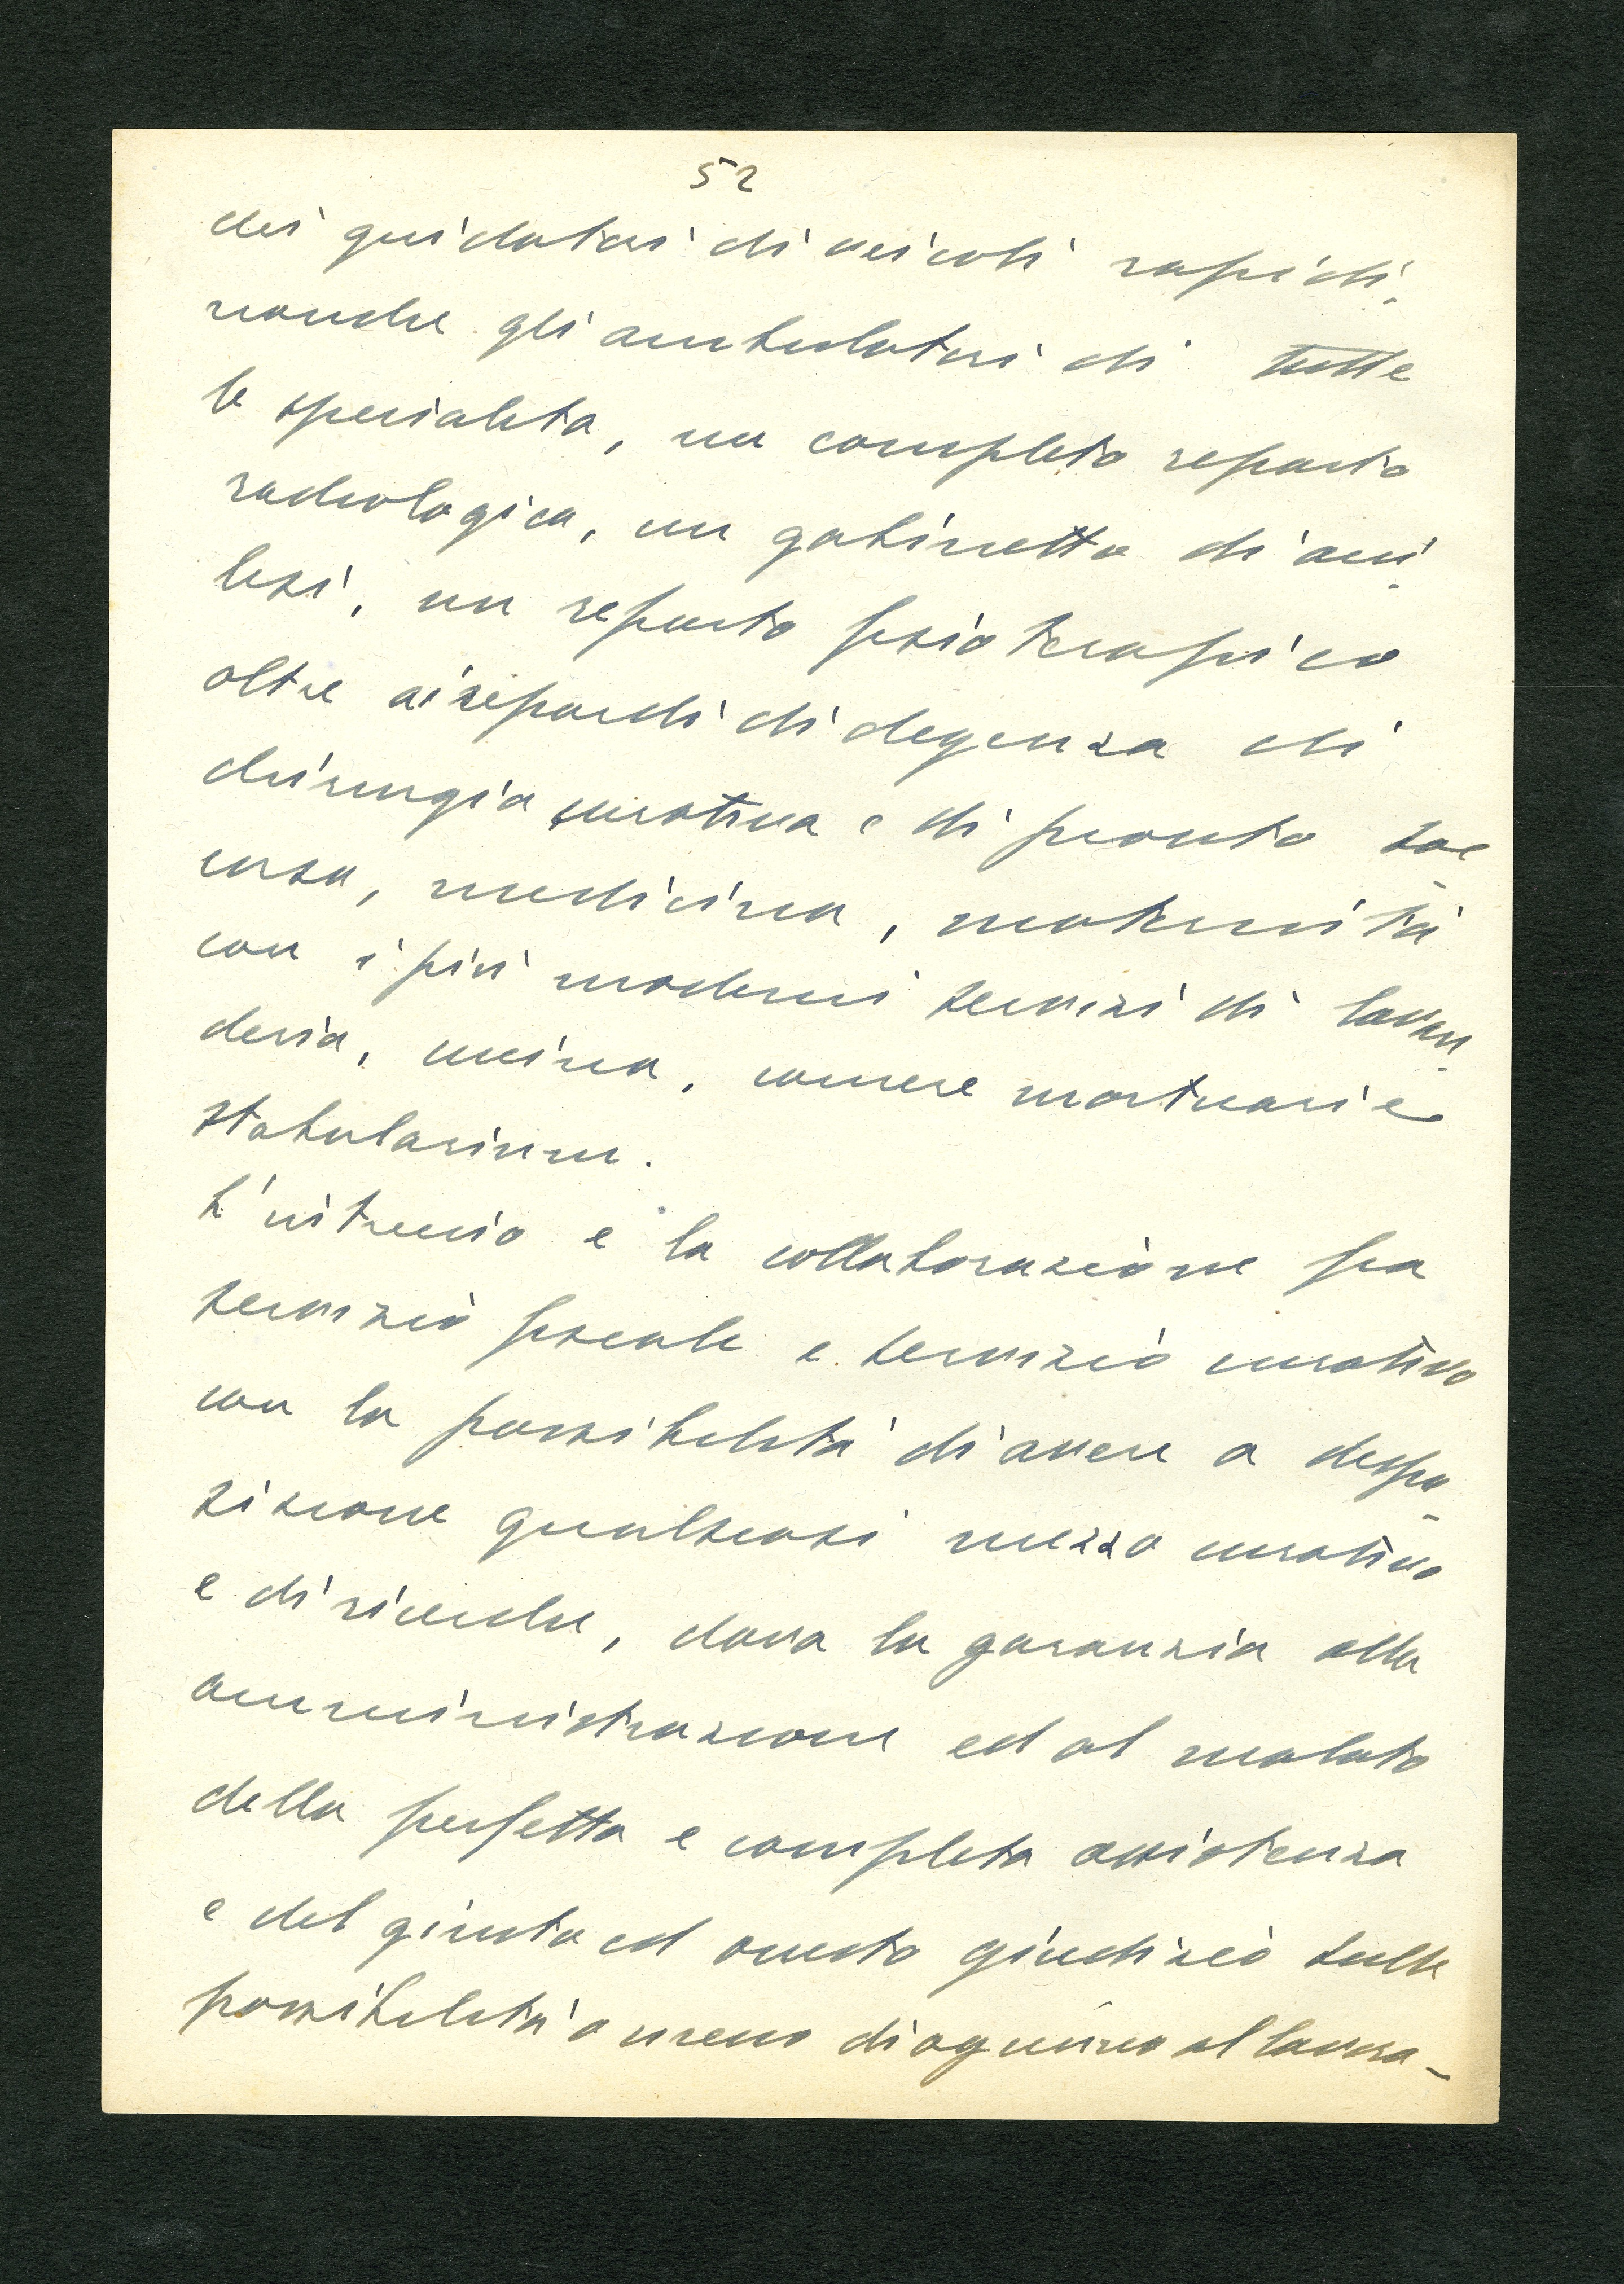 52
dei guidatori di veicoli rapidi,
nonche gli ambulatori di tutte
le specialita, un completo reparto
radiologico, un gabinetto di ana
lesi, un reparto fisioterapico
oltre ai reparti di degenza di
chirurgia curativa e di pronto soc
corso, medicina, maternità
con i più moderni servizi di lavan
deria, cucina, camere mortuarie
stabularium.
L'intreccio e la collaborazione fra
servizio fiscale e servizio curativo
con la possibilità di avere a dispo-
sizione qualsiasi mezzo curativo
e di ricerche, dava la garanzia alla
amministrazione ed al malato
della perfetta e completa assistenza
e del giusto ed onesto giudizio sulle
possibilità o meno di ognuno al lavoro-